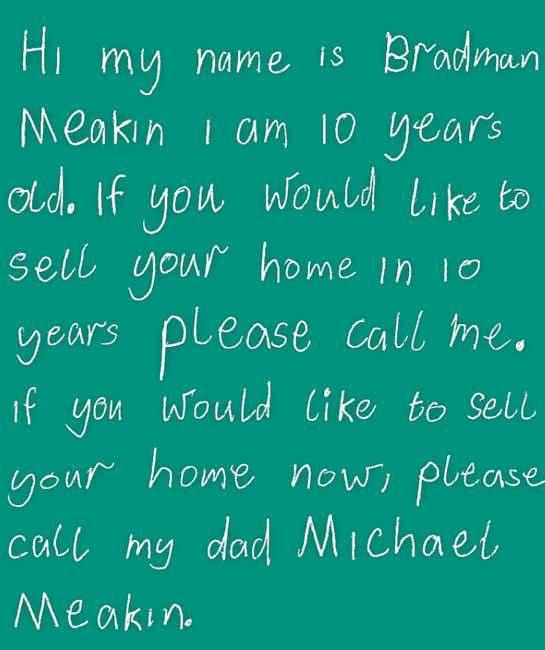 Hi my name is Bradman
Meakin I am 10 years
old. If you would like to
sell your home in 10
years please call me.
if you would like to sell
your home now, please
call my dad Michael
Meakin.